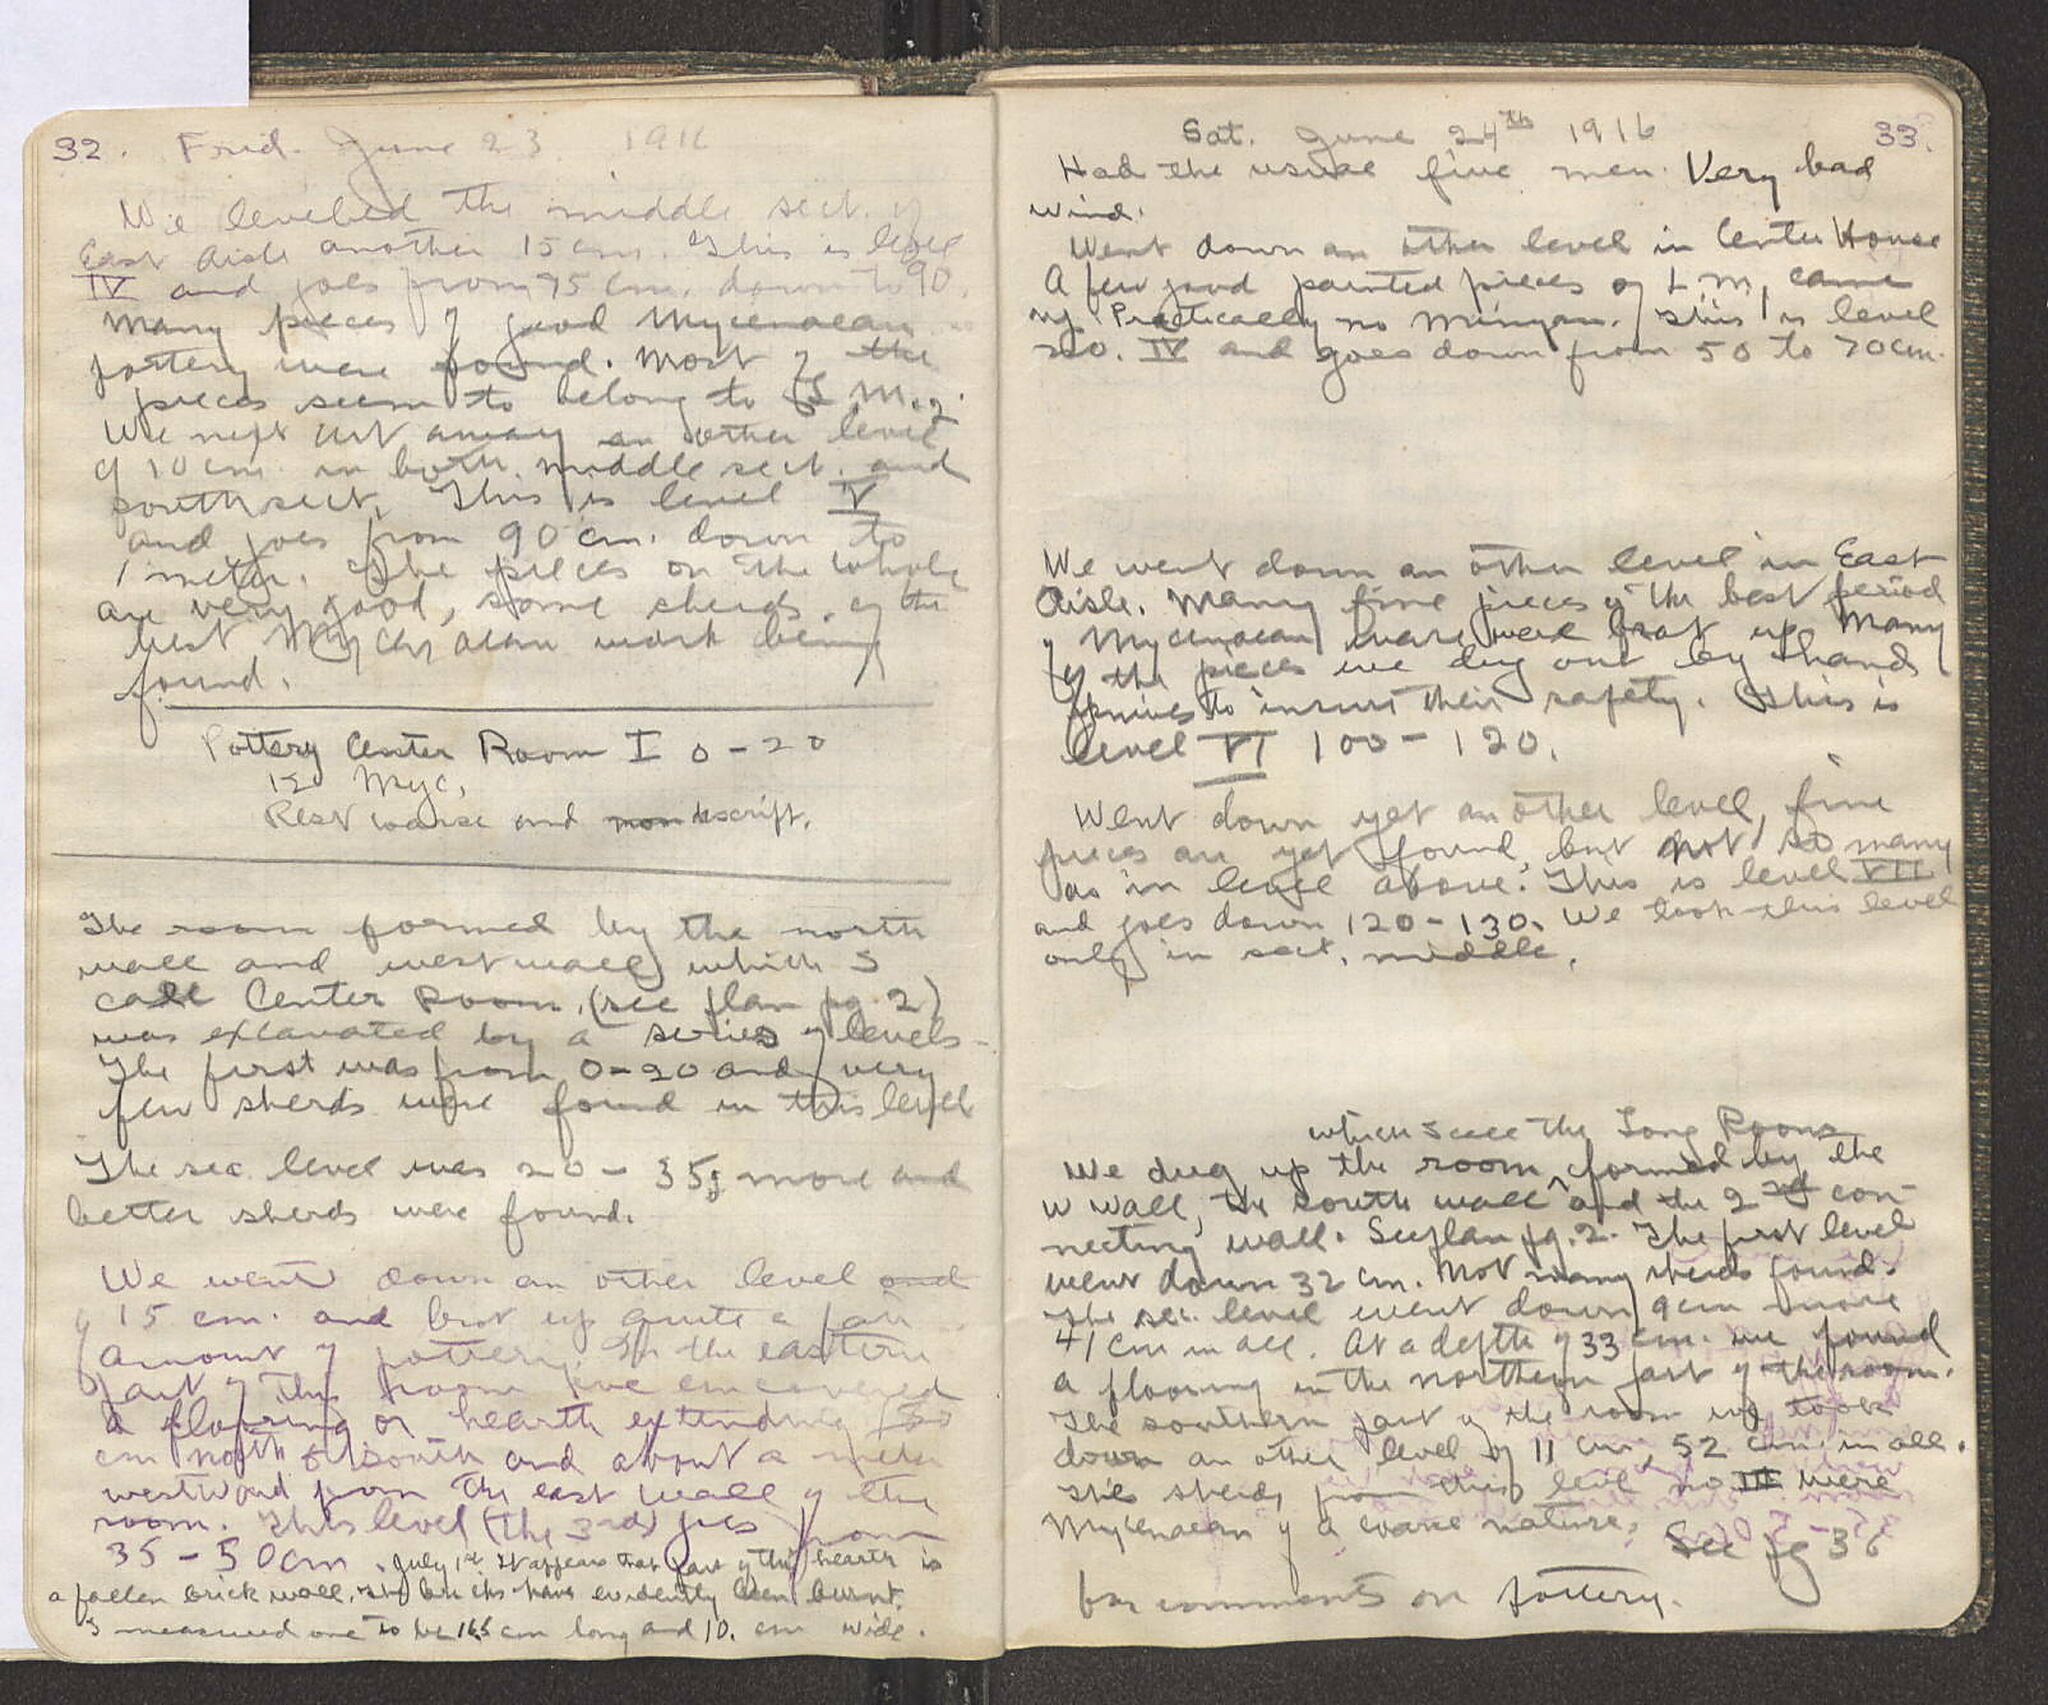 32. Frid. June 23 1916
We levelled the middle sect. of
East Aisle another 15 cm. This is level
IV and goes from 75 cm. down to 90.
Many pieces of good Mycenaean
pottery were found. Most of the
pieces seem to belong to L M. 2.
We next cut away an other level
of 10 cm. in both middle sect. and
south sect. This is level V
and goes from 90 cm. down to
1 meter. The pieces on the whole
are very good, some sherds of the
best Mycenaean work being
found.
Pottery Center Room I 0 - 20
Myc,
Rest coarse and nondescript.
The room formed by the north
wall and west wall which I
call Center Room, (see plan pg. 2)
was excavated by a series of levels -
The first was from 0-20 and very
few sherds were found in this level
The sec. level was 20 - 35; more and
better sherds were found.
We went down an other level and
of 15 cm. and brot up quite a fair
amount of pottery. In the eastern
part of this room we uncovered
a flooring or hearth extending
cm north & south and about a meter
westward from the east wall of the
room. This level (the 3rd) goes from
35 - 50 cm. July 1st It appears that part of this hearth is
a fallen brick wall. The bricks have evidently been burnt.
I measured one to be 16.5 cm long and 10. cm wide.
Sat. June 24th 1916 33.
Had the usual five men. Very bad
wind.
Went down an other level in Center House
A few good painted pieces of L M, came
up. Practically no Minyan. This is level
no. IV and goes down from 50 to 70 cm.
We went down an other level in East
Aisle. Many fine pieces of the best period
of Mycenaean ware were brot up. Many
of the pieces we dug out by hand
knives to insure their safety. This is
level VI 100 - 120.
Went down yet an other level, fine
pieces are yet found, but not so many
as in level above. This is level VII
and goes down 120 - 130. We took this level
only in sect. middle.
which I call the Long Room
We dug up the room ^ formed by the
W wall, the south wall and the 2nd con-
necting wall. See plan pg. 2. The first level
went down 32 cm. Not many sherds found.
The sec. level went down 9 cm more
41 cm in all. At a depth of 33 cm. we found
a flooring in the northern part of the room.
The southern part of the room we took
down an other level of 11 cm, 52 cm. in all.
The sherds from this level no III were
Mycenaean of a coarse nature. See pg 36
for comments on pottery.